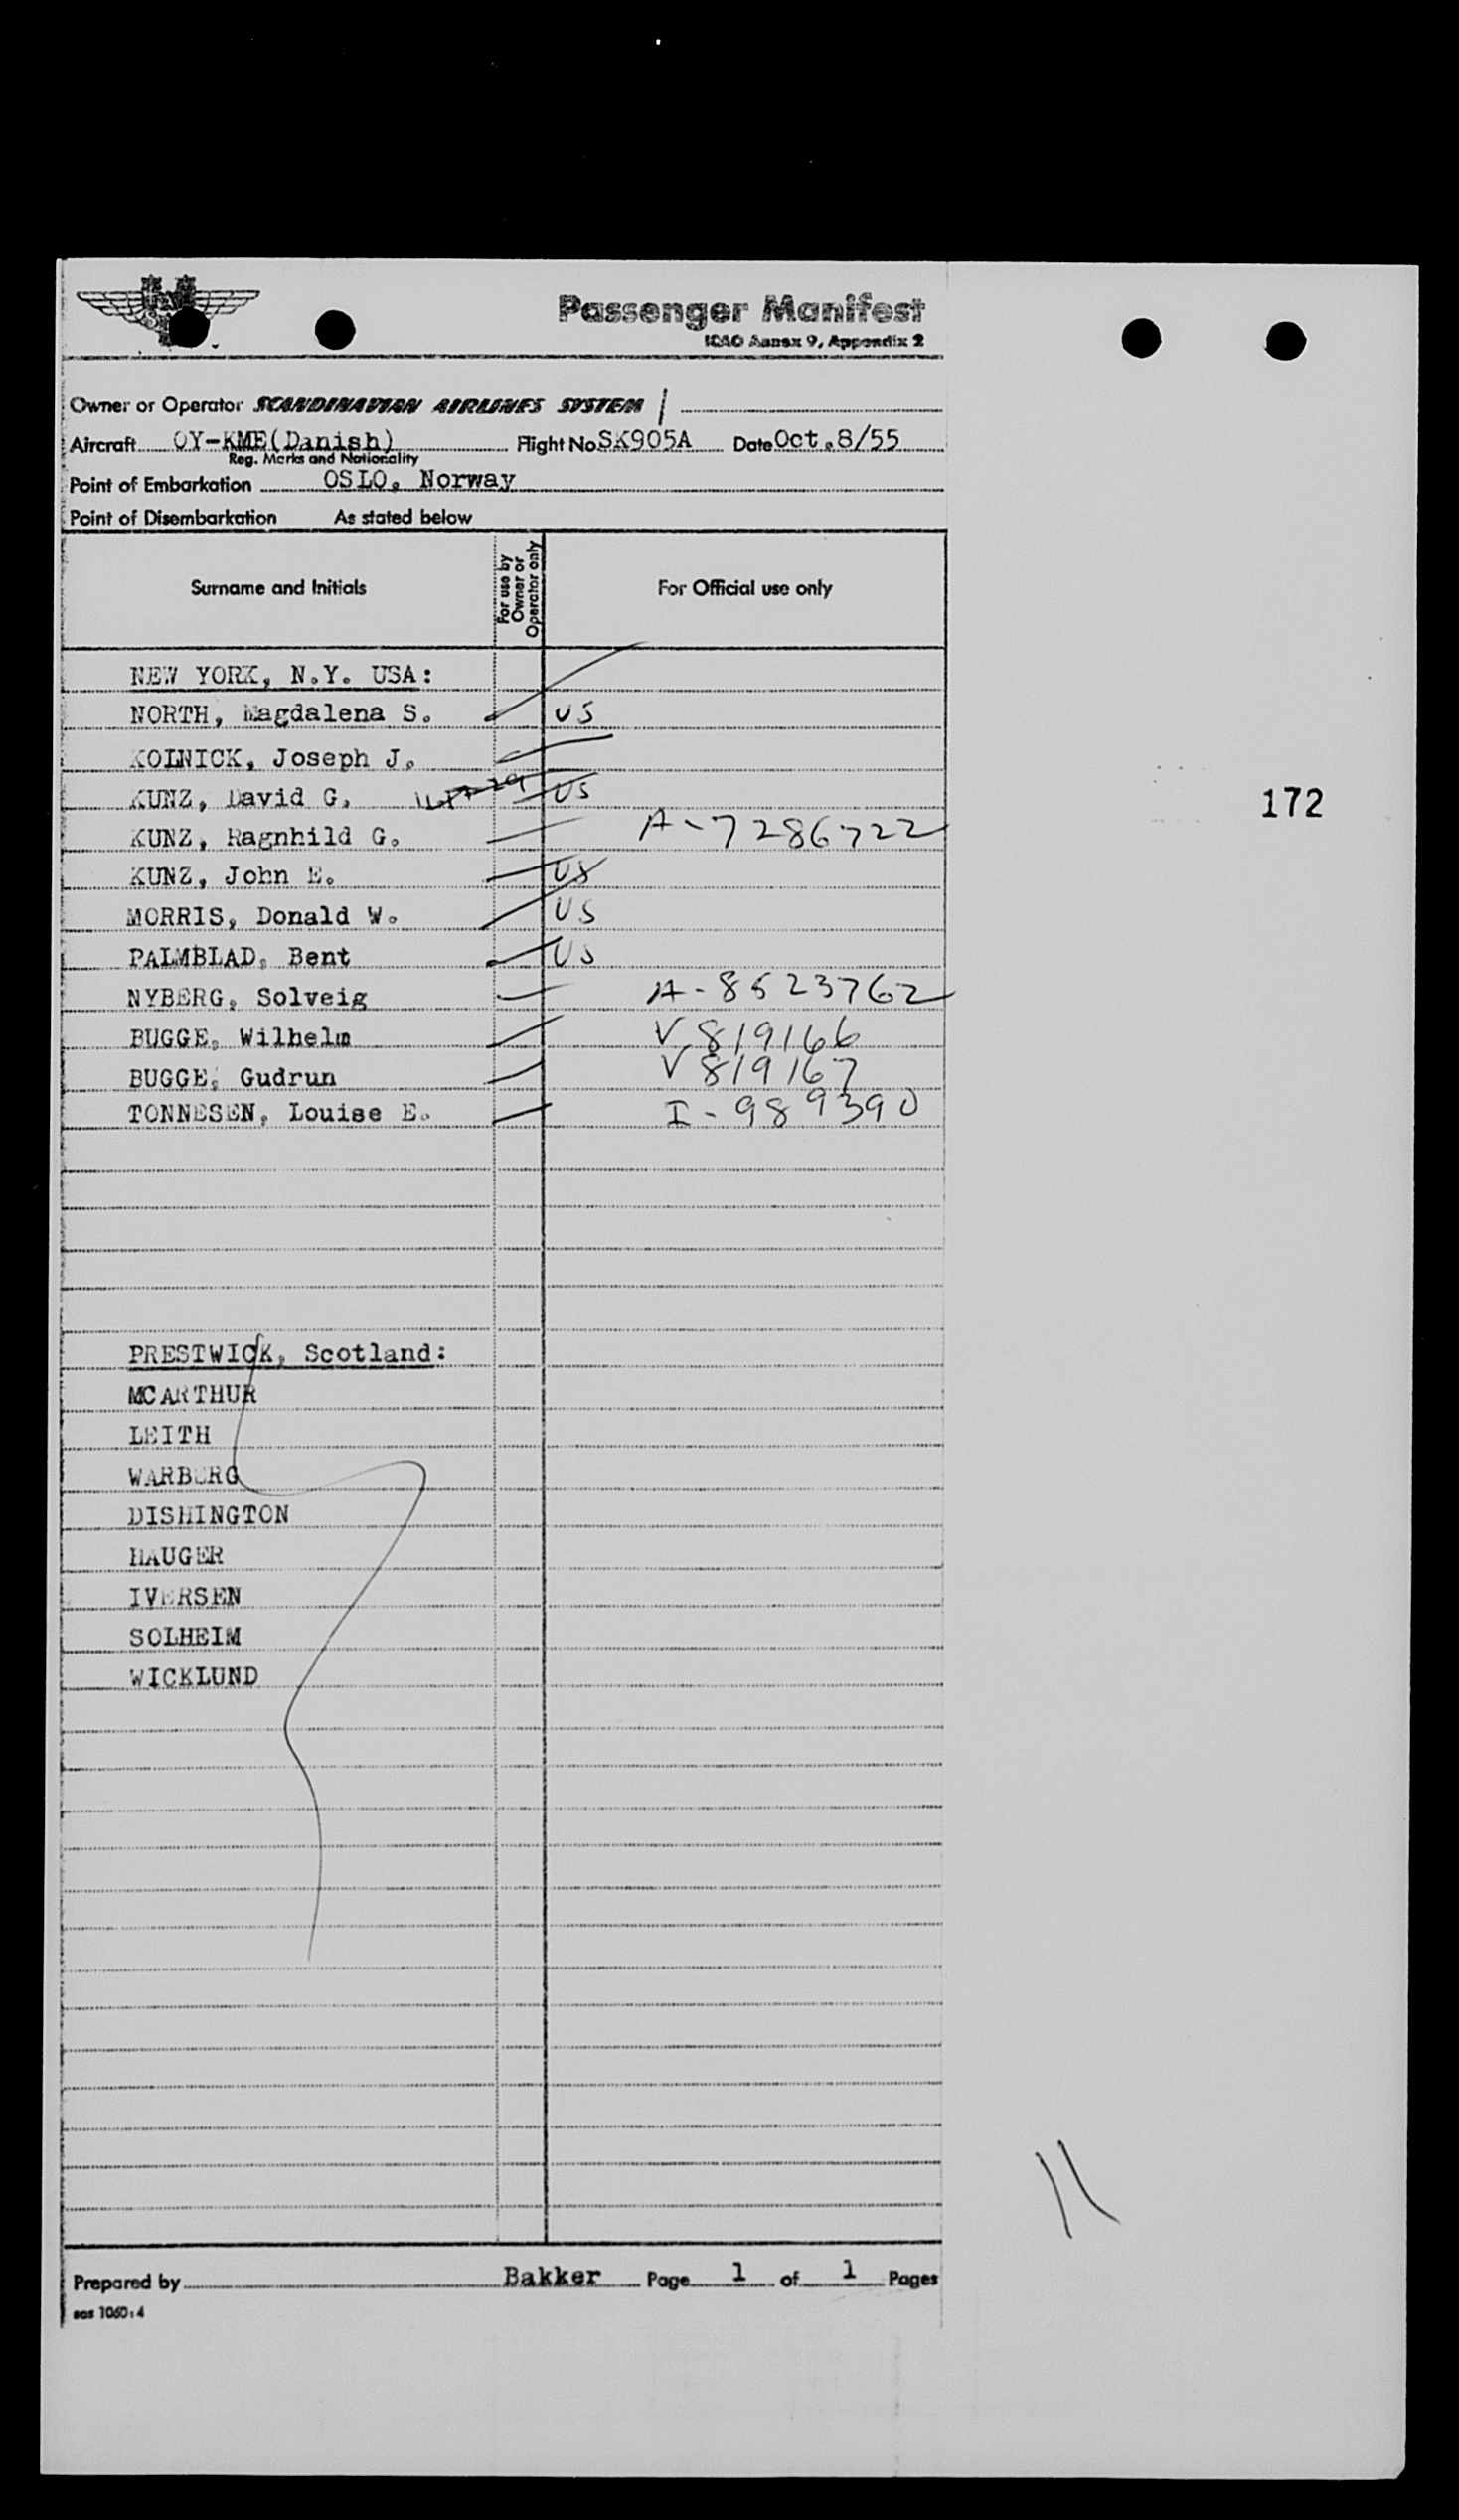 Passenger Manifest
ICAO Annex 9, Appendix 2
Owner or Operator SCANDINAVIAN AIRLINES SYSTEM /
Aircraft OY-KME(Danish) Flight No SK905A Date Oct.8/55
Reg. Marks and Nationality
Point of Embarkation OSLO, Norway
Point of Disembarkation As stated below
Surname and Initials For use by Owner or Operator only For Official use only
NEW YORK, N.Y. USA:
NORTH, Magdalena S. US
KOLNICK, Joseph J.
KUNZ, David G. US
172
KUNZ, Ragnhild G. A-7286722
KUNZ, John E. US
MORRIS, Donald W. US
PALMBLAD, Bent US
NYBERG, Solveig A-8523762
BUGGE, Wilhelm V 819166
BUGGE, Gudrun V 819167
TONNESEN, Louise E. I-989390
PRESTWICK, Scotland:
MCARTHUR
LEITH
WARBERG
DISHINGTON
HAUGER
IVERSEN
SOLHEIM
WICKLUND
11
Prepared by Bakker Page 1 of 1 Pages
sas 1060:4